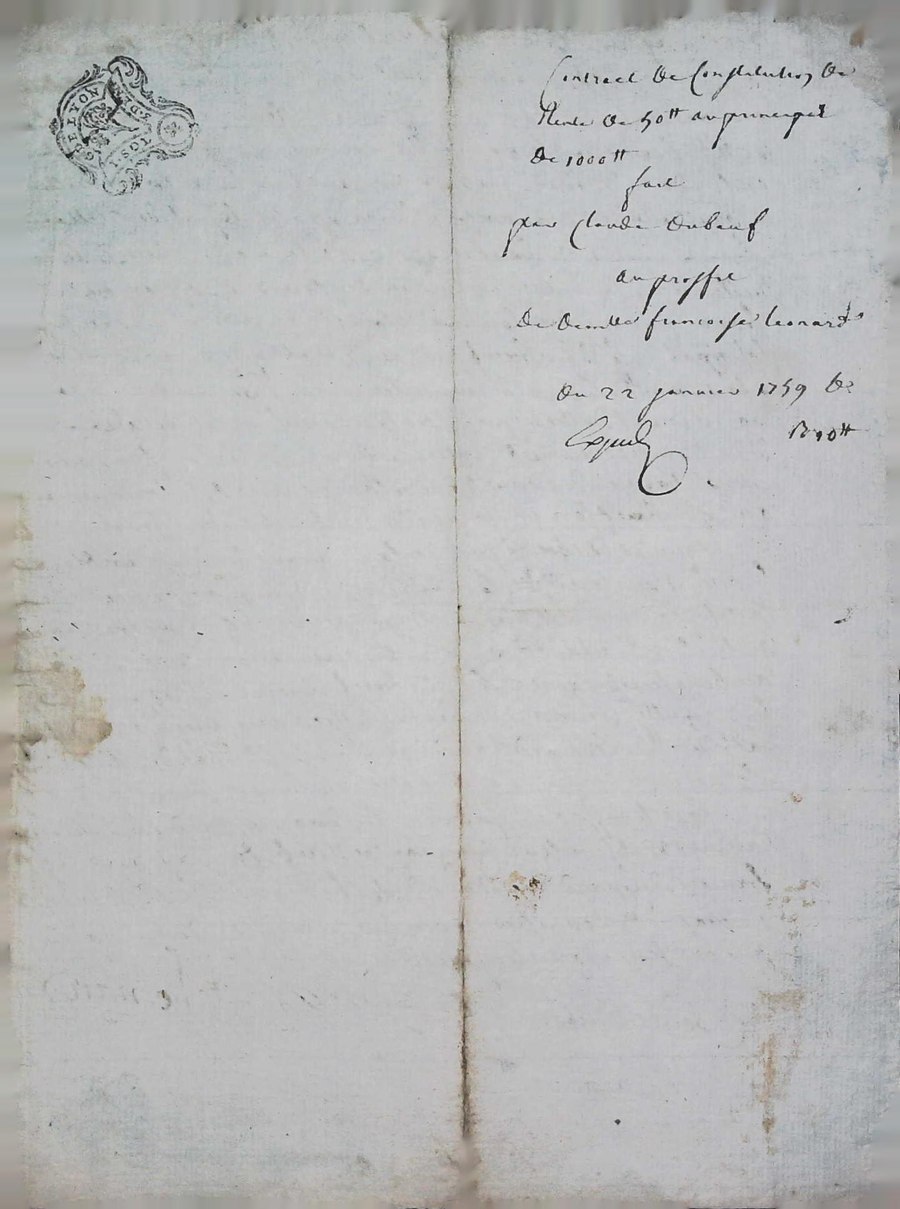 GE LYON
Contract de Constitution de
Rente de 50tt au principal
de 1000tt
fait
par Claude Dubeuf
au proffit
de demlle francoise Leonard
du 22 janvier 1759